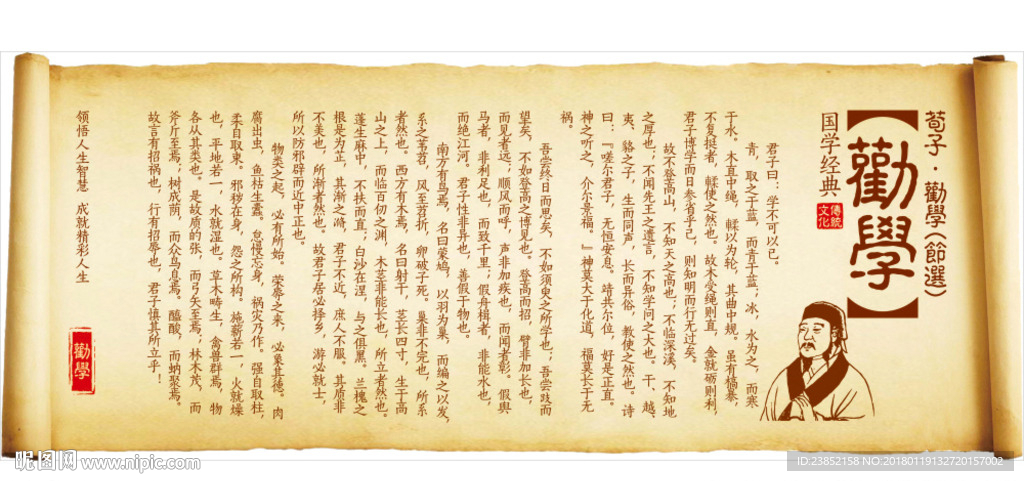 荀子·勸學(節選)
【勸學】
国学经典
傳統
文化
君子曰：学不可以已。
青，取之于蓝，而青于蓝；冰，水为之，而寒
于水。木直中绳，輮以为轮，其曲中规。虽有槁暴，
不复挺者，輮使之然也。故木受绳则直，金就砺则利，
君子博学而日参省乎己，则知明而行无过矣。
故不登高山，不知天之高也；不临深溪，不知地
之厚也；不闻先王之遗言，不知学问之大也。干、越、
夷、貉之子，生而同声，长而异俗，教使之然也。诗
曰：『嗟尔君子，无恒安息。靖共尔位，好是正直。
神之听之，介尔景福。』神莫大于化道，福莫长于无
祸。
吾尝终日而思矣，不如须臾之所学也；吾尝跂而
望矣，不如登高之博见也。登高而招，臂非加长也，
而见者远；顺风而呼，声非加疾也，而闻者彰。假舆
马者，非利足也，而致千里；假舟楫者，非能水也，
而绝江河。君子性非异也，善假于物也。
南方有鸟焉，名曰蒙鸠，以羽为巢，而编之以发，
系之苇苕，风至苕折，卵破子死。巢非不完也，所系
者然也。西方有木焉，名曰射干，茎长四寸，生于高
山之上，而临百仞之渊，木茎非能长也，所立者然也。
蓬生麻中，不扶而直；白沙在涅，与之俱黑。兰槐之
根是为芷，其渐之滫，君子不近，庶人不服。其质非
不美也，所渐者然也。故君子居必择乡，游必就士，
所以防邪辟而近中正也。
物类之起，必有所始。荣辱之来，必象其德。肉
腐出虫，鱼枯生蠹。怠慢忘身，祸灾乃作。强自取柱，
柔自取束。邪秽在身，怨之所构。施薪若一，火就燥
也，平地若一，水就湿也。草木畴生，禽兽群焉，物
各从其类也。是故质的张，而弓矢至焉；林木茂，而
斧斤至焉；树成荫，而众鸟息焉。醯酸，而蚋聚焉。
故言有招祸也，行有招辱也，君子慎其所立乎！
领悟人生智慧 成就精彩人生
勸學
昵图网 www.nipic.com
ID:23852158 NO:20180119132720157002